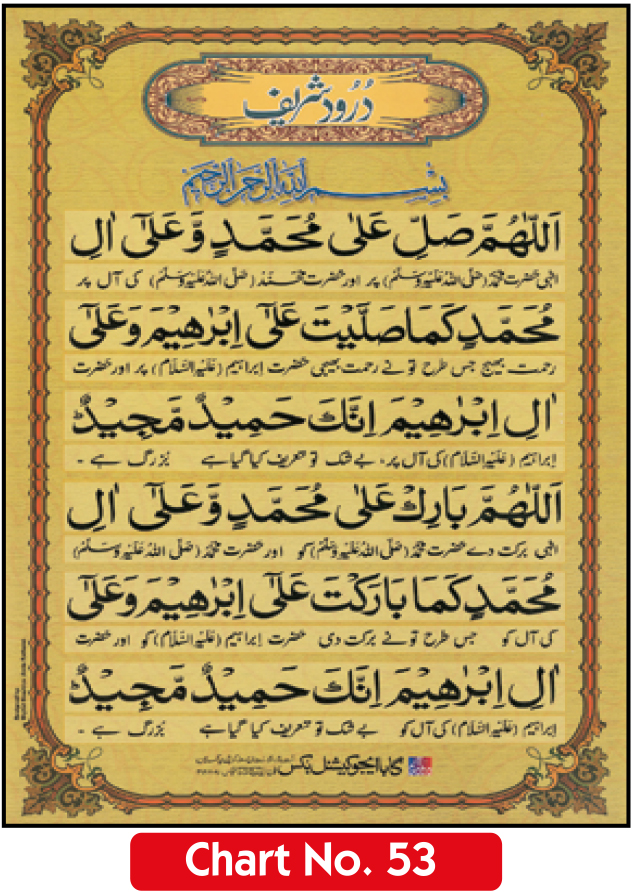 دُرُود شریف
بِسْمِ اللهِ الرَّحْمٰنِ الرَّحِيْمِ
اَللّٰهُمَّ صَلِّ عَلٰى مُحَمَّدٍ وَّعَلٰٓى اٰلِ
الٰہی حضرت مُحَمَّدْ (صَلَّی اللهُ عَلَیْهِ وَسَلَّمْ) پر اور حضرت مُحَمَّدْ (صَلَّی اللهُ عَلَیْهِ وَسَلَّمْ) کی آل پر
مُحَمَّدٍ كَمَا صَلَّيْتَ عَلٰٓى اِبْرٰهِيْمَ وَعَلٰٓى
رحمت بھیج جس طرح تو نے رحمت بھیجی حضرت اِبراہیم (عَلَیْهِ السَّلَام) پر اور حضرت
اٰلِ اِبْرٰهِيْمَ اِنَّكَ حَمِيْدٌ مَّجِيْدٌ
اِبراہیم (عَلَیْهِ السَّلَام) کی آل پر، بے شک تو تعریف کیا گیا ہے بُزرگ ہے ۔
اَللّٰهُمَّ بَارِكْ عَلٰى مُحَمَّدٍ وَّعَلٰٓى اٰلِ
الٰہی برکت دے حضرت مُحَمَّدْ (صَلَّی اللهُ عَلَیْهِ وَسَلَّمْ) کو اور حضرت مُحَمَّدْ (صَلَّی اللهُ عَلَیْهِ وَسَلَّمْ)
مُحَمَّدٍ كَمَا بَارَكْتَ عَلٰٓى اِبْرٰهِيْمَ وَعَلٰٓى
کی آل کو جس طرح تو نے برکت دی حضرت اِبراہیم (عَلَیْهِ السَّلَام) کو اور حضرت
اٰلِ اِبْرٰهِيْمَ اِنَّكَ حَمِيْدٌ مَّجِيْدٌ
اِبراہیم (عَلَیْهِ السَّلَام) کی آل کو بے شک تو تعریف کیا گیا ہے بُزرگ ہے ۔
گابا ایجوکیشنل بکس
Chart No. 53